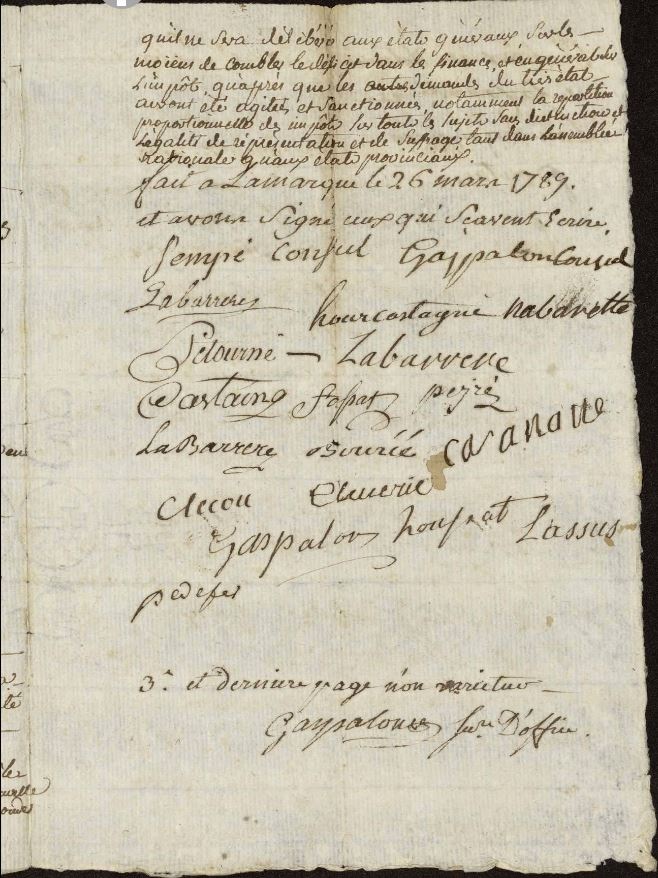 qu'il ne sera déliberé aux états généraux sur les
moiens de combler le déficit dans les finances, et en général sur
L'impôt, qu'aprés que les autres demandes du tiers état
auront été agitées et sanctionnées, notamment la repartition
proportionnelle des impôts sur tous les sujets sans distinction et
Legalité de représentation et de suffrage tant dans L'assemblée
nationale qu'aux états provinciaux.
fait a Lamarque le 26 mars 1789.
et avons signé ceux qui scavent Ecrire
Sempé Consul Gaspalou Consul
Labarrere hourcastagné nabarette
Pétourné Labarrere
Castaing sapat peyré
LaBarrere casanaue
Gaspalou Lassus
3e. et derniere page non varietur
Gaspalou d'office.